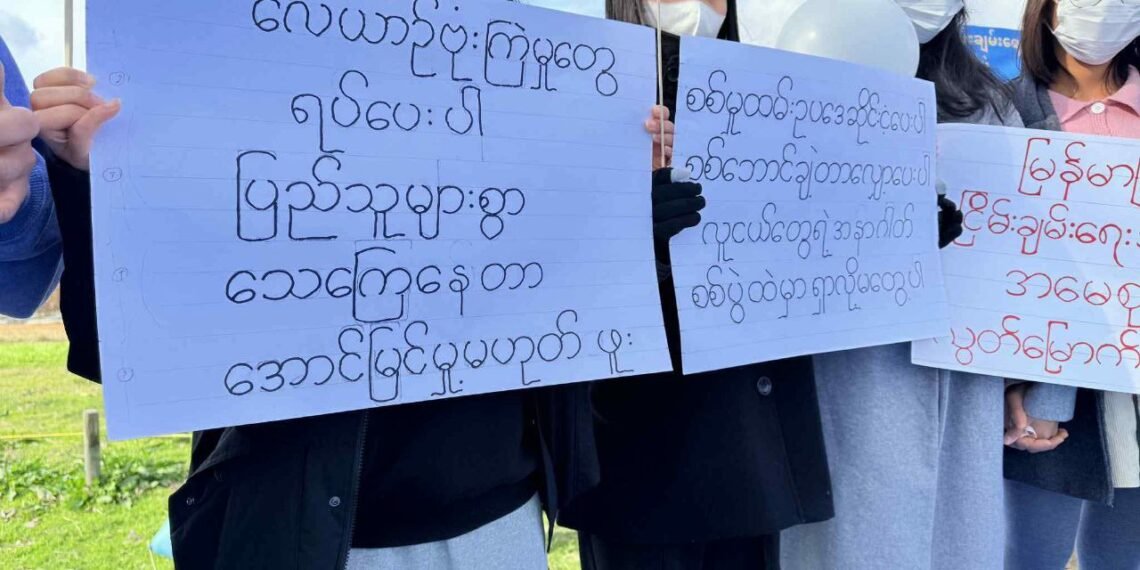 လေယာဉ်ဗုံးကြဲမှုတွေ
ရပ်ပေးပါ
ပြည်သူများစွာ
သေကြေနေတာ
အောင်မြင်မှုမဟုတ်ဖူး
စစ်မှုထမ်းဥပဒေဆိုင်းငံ့ပေးပါ
စစ်ဘောင်ချဲတာလျှော့ပေးပါ
လူငယ်တွေရဲ့အနာဂါတ်
စစ်ပွဲထဲမှာရှာလို့မတွေ့ပါ
မြန်မာ
ငြိမ်းချမ်းရေး
အမေစု
လွတ်မြောက်